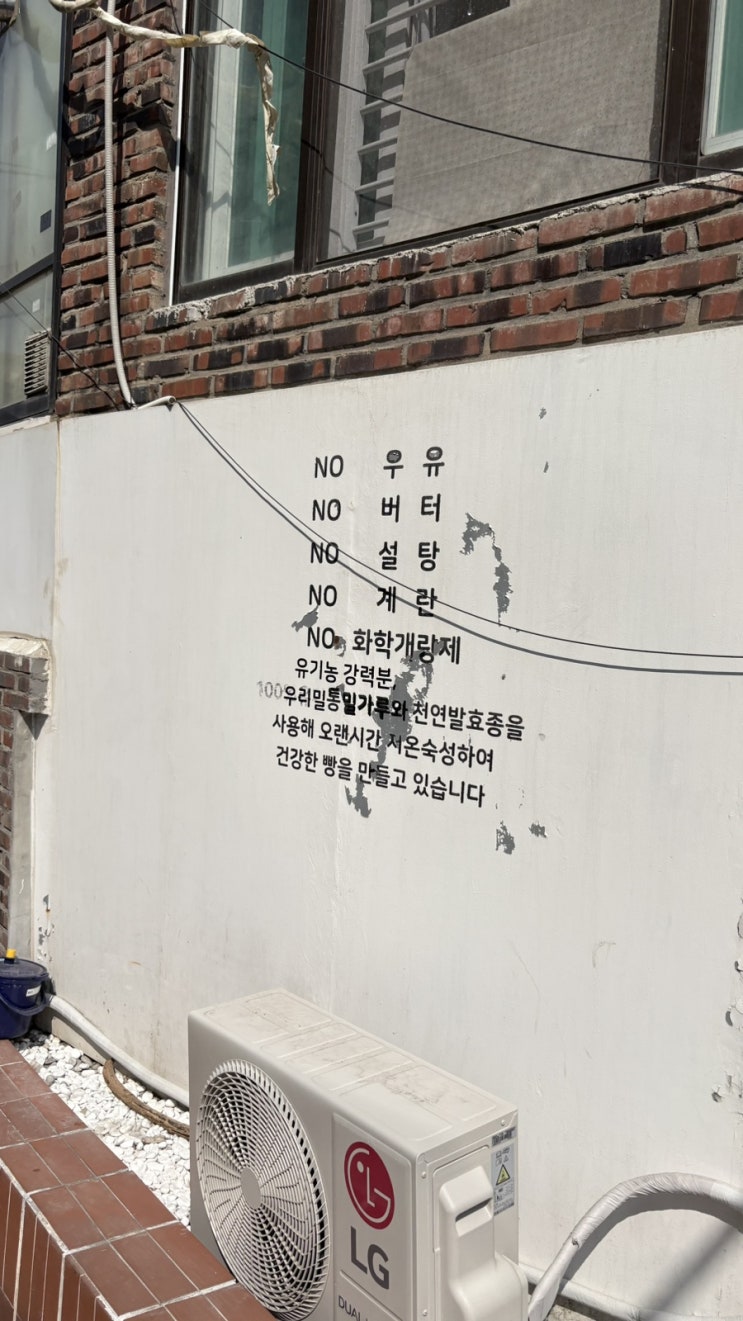 NO 우유
NO 버터
NO 설탕
NO 계란
NO 화학개량제
유기농 강력분,
100% 우리밀통밀가루와 천연발효종을
사용해 오랜시간 저온숙성하여
건강한 빵을 만들고 있습니다
LG
DUAL